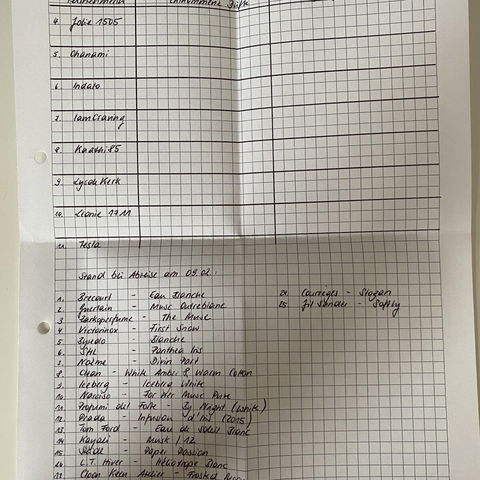 Teilnehmerin Entnommene Düfte
4. Jolie 1505
5. Chanami
6. Indato
7. IamCraving
8. Kaathi85
9. LysdeKerk
10. Leonie 1711
11. Tesla
Stand bei Abreise am 09.02.:
1. Brecourt - Eau Blanche
2. Guerlain - Musc Outreblanc
3. Parkoperfume - The Muse
4. Victorinox - First Snow
5. Byredo - Blanche
6. - Panthea Iris
7. Noème - Divin Part
8. Clean - White Amber & Warm Cotton
9. Iceberg - Iceberg White
10. Narciso - For Her Musc Pure
11. Profumi del Forte - By Night (White)
12. Prada - Infusion d'Iris (2015)
13. Tom Ford - Eau de Soleil Blanc
14. Kayali - Musk / 12
15. - Paper Passion
16. L.T. Hiver - Héliotrope Blanc
17. Clean Reserve - Frosted
24. Courreges - Slogan
25. Jil Sander - Softly